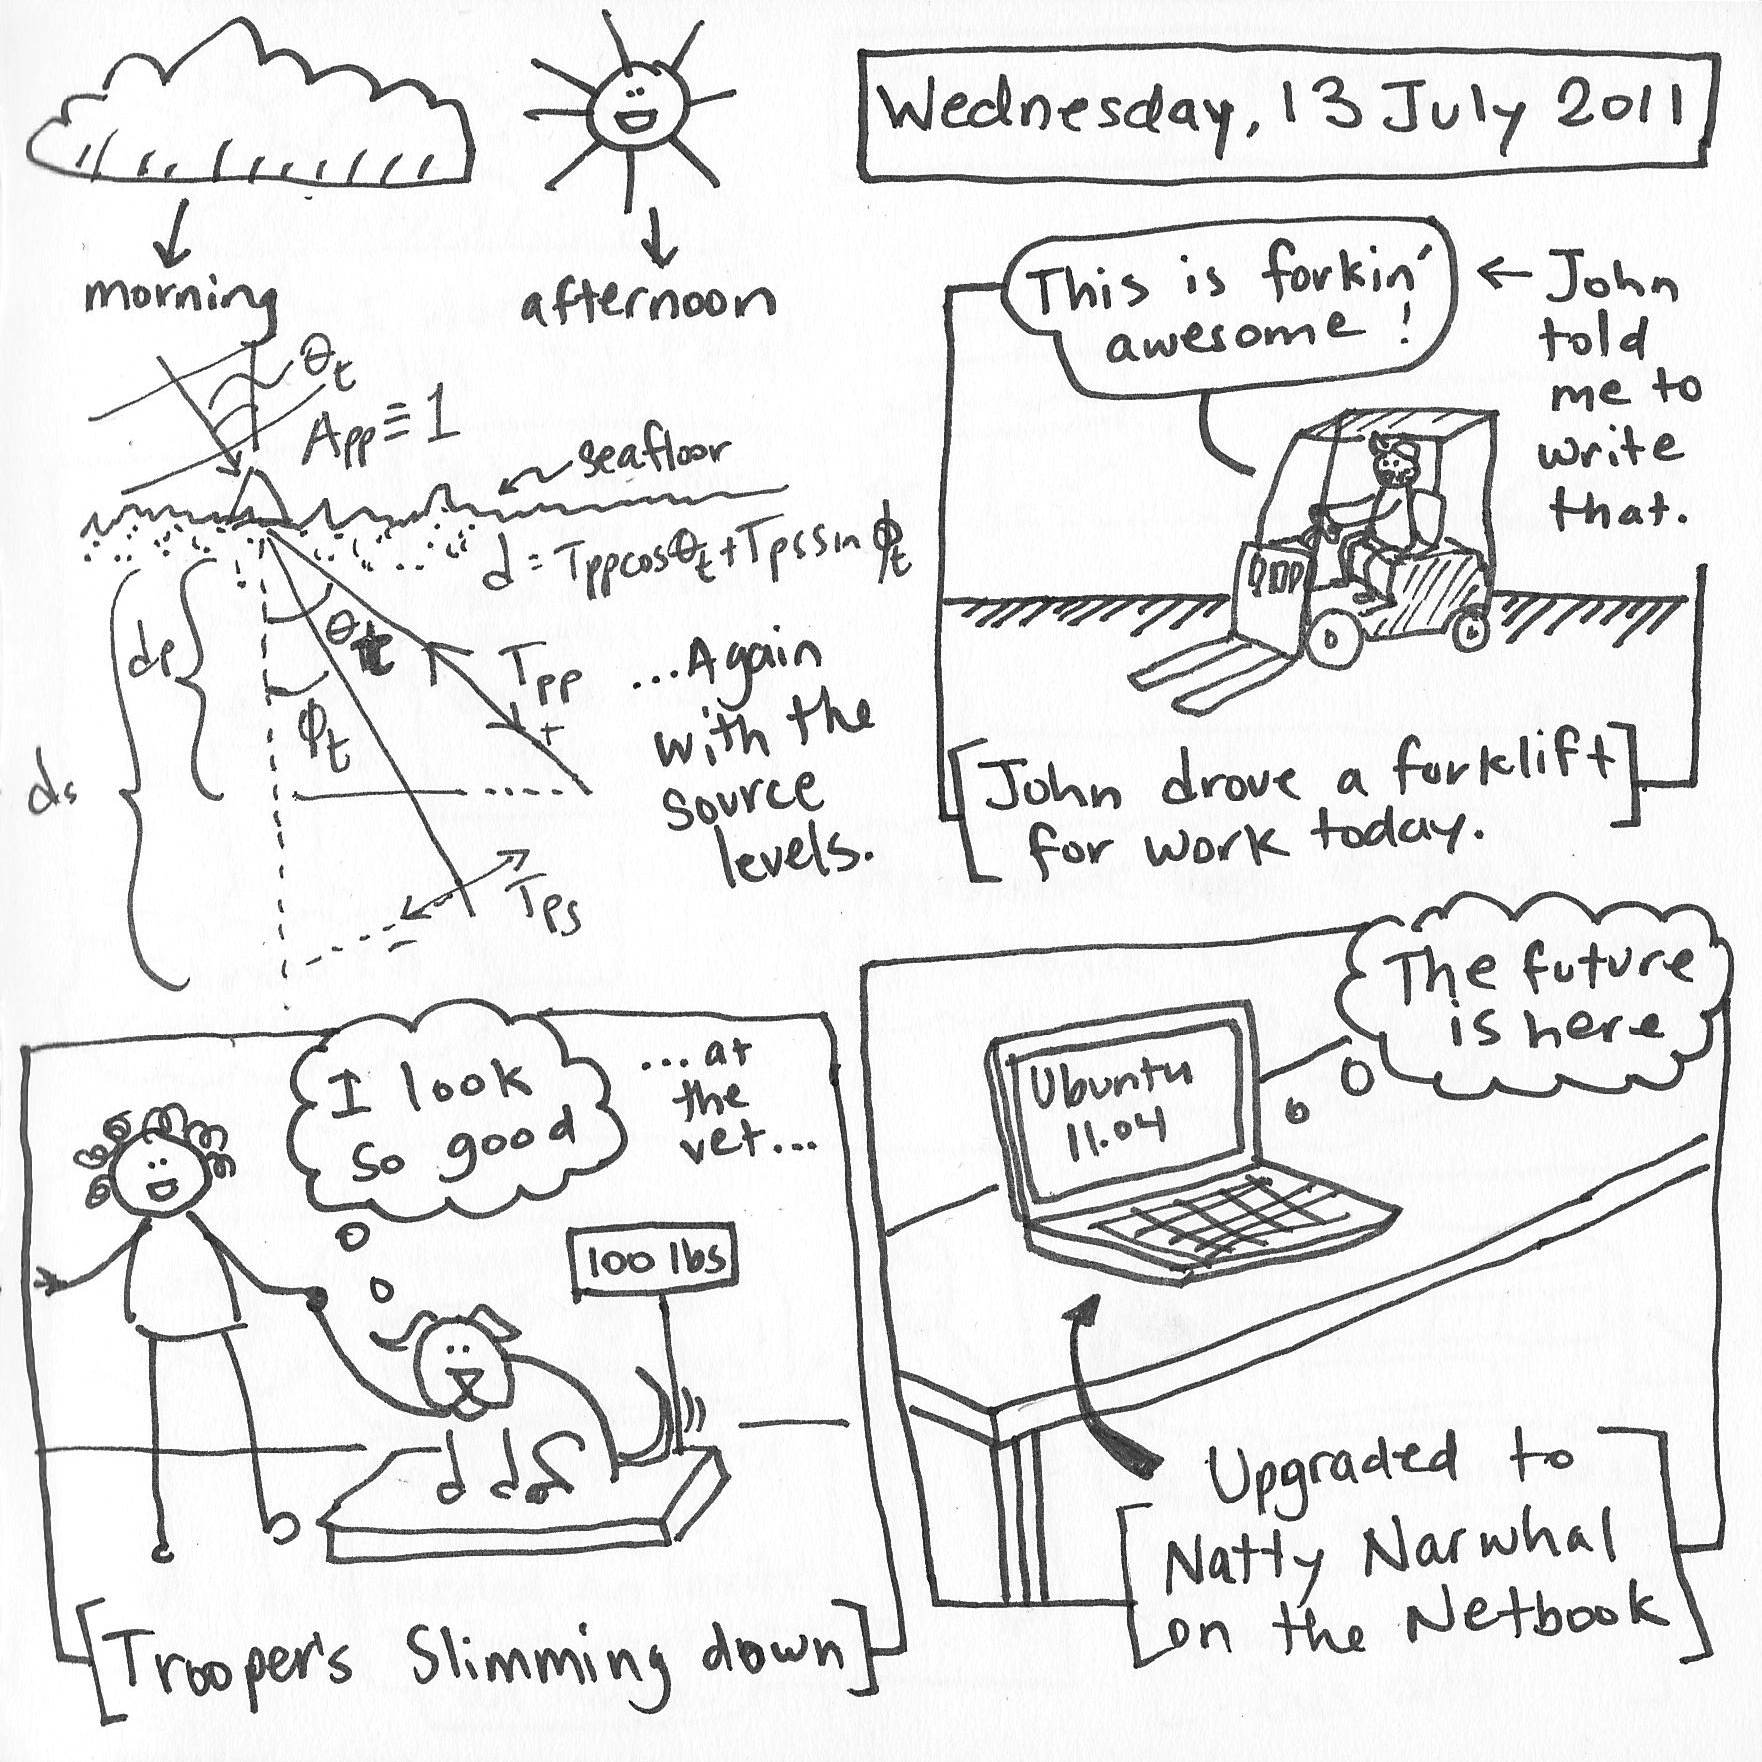 Wednesday, 13 July 2011
morning
afternoon
θt
App ≡ 1
seafloor
d = Tpp cos θt + Tps sin ϕt
de
θt
Tpp
+
ϕt
ds
Tps
-
...Again
with the
source
levels.
This is forkin'
awesome!
John
told
me to
write
that.
John drove a forklift
for work today.
I look
so good
...at
the
vet...
100 lbs
Trooper's Slimming down
The future
is here
Ubuntu
11.04
Upgraded to
Natty Narwhal
on the Netbook